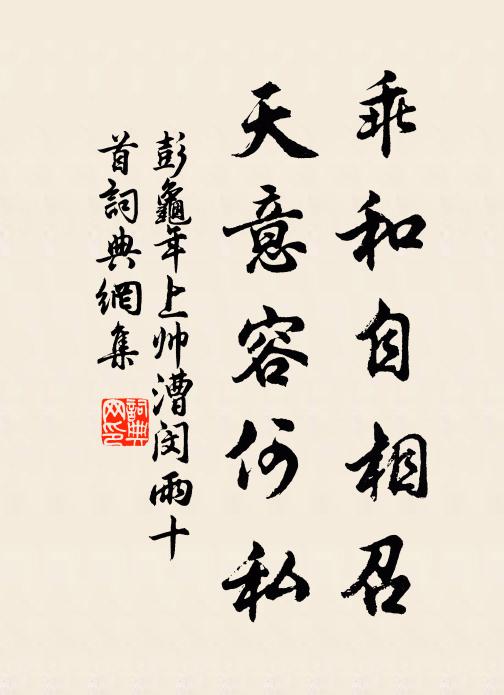 乖和自相召
天意容何私
彭龜年上帅漕闵雨十
首詞典網集
詞典
网印